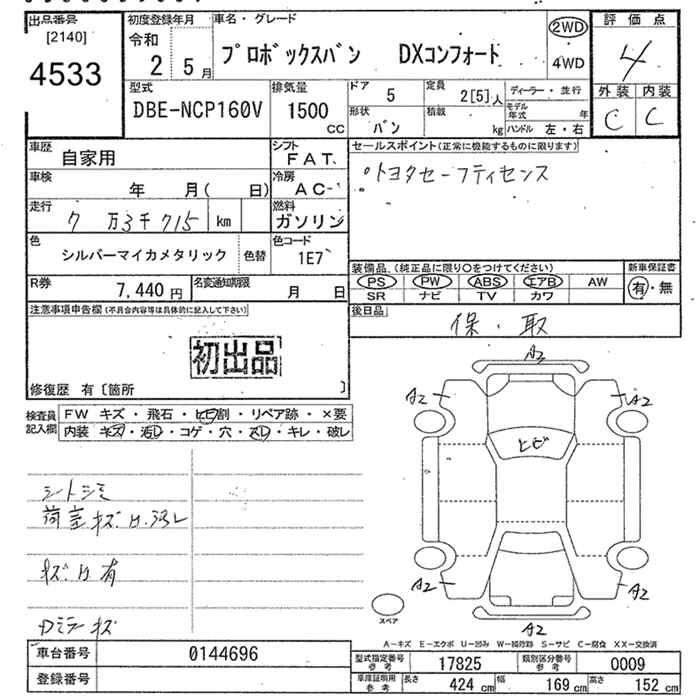 出品番号
[2140]
4533
初度登録年月
令和
2 5月
車名・グレード
プロボックスバン DXコンフォート
2WD
4WD
評価点
4
外装 内装
C C
型式
DBE-NCP160V
排気量
1500
CC
ドア 5
形状 バン
定員 2[5]人
積載 kg
ディーラー・並行
モデル年式 年
ハンドル 左・右
車歴 自家用
シフト FAT
車検 年 月( 日)
冷房 AC
走行 7万3千715 km
燃料 ガソリン
色 シルバーマイカメタリック 色替
色コード 1E7
セールスポイント(正常に機能するものに限ります)
トヨタセーフティセンス
装備品 (純正品に限り○をつけてください)
PS PW ABS エアB AW
SR ナビ TV カワ
新車保証書
有・無
R券 7,440円
名変通知期限 月 日
後日品 保・取
注意事項申告欄(不具合内容等は具体的に記入して下さい)
初出品
修復歴 有〔箇所 〕
検査員記入欄
FW キズ・飛石・ヒビ割・リペア跡・×要
内装 キズ・汚レ・コゲ・穴・スレ・キレ・破レ
シートシミ
荷室キズ H.スレ
キズH有
Dミラーキズ
A2
A2
A2
ヒビ
A2
A2
A2
スペア
A-キズ E-エクボ U-凹み W-補修跡 S-サビ C-腐食 XX-交換済
車台番号 0144696
登録番号
型式指定番号 参考 17825
類別区分番号 参考 0009
車庫証明用 参考 長さ 424cm 幅 169cm 高さ 152cm